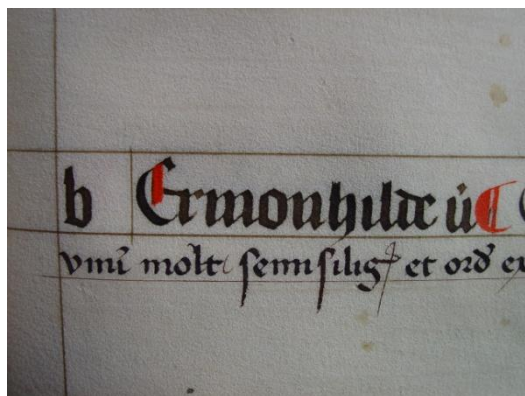 b Ermonhilde v̊ ¶
vnū molt semi silig et ord ex